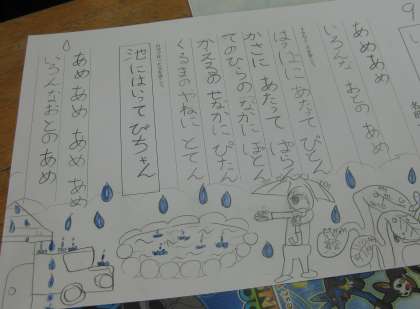 あめ あめ
いろんな おとの あめ
はっぱに あたって ぴとん
かさに あたって ぱらん
てのひらの なかに ぽとん
かえるの せなかに ぴたん
くるまの やねに とてん
池にはいって ぴちゃん
あめ あめ あめ あめ
いろんなおとの あめ